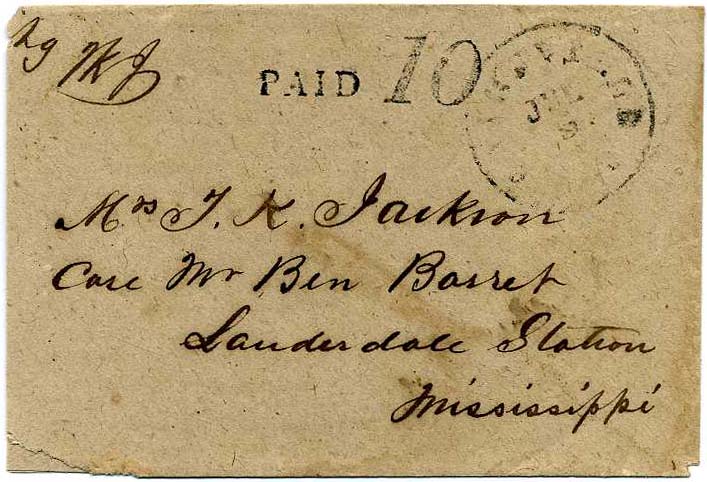 TKJ
PAID 10
JUL
Mrs T. K. Jackson
Care Mr Ben Barret
Lauderdale Station
Mississippi